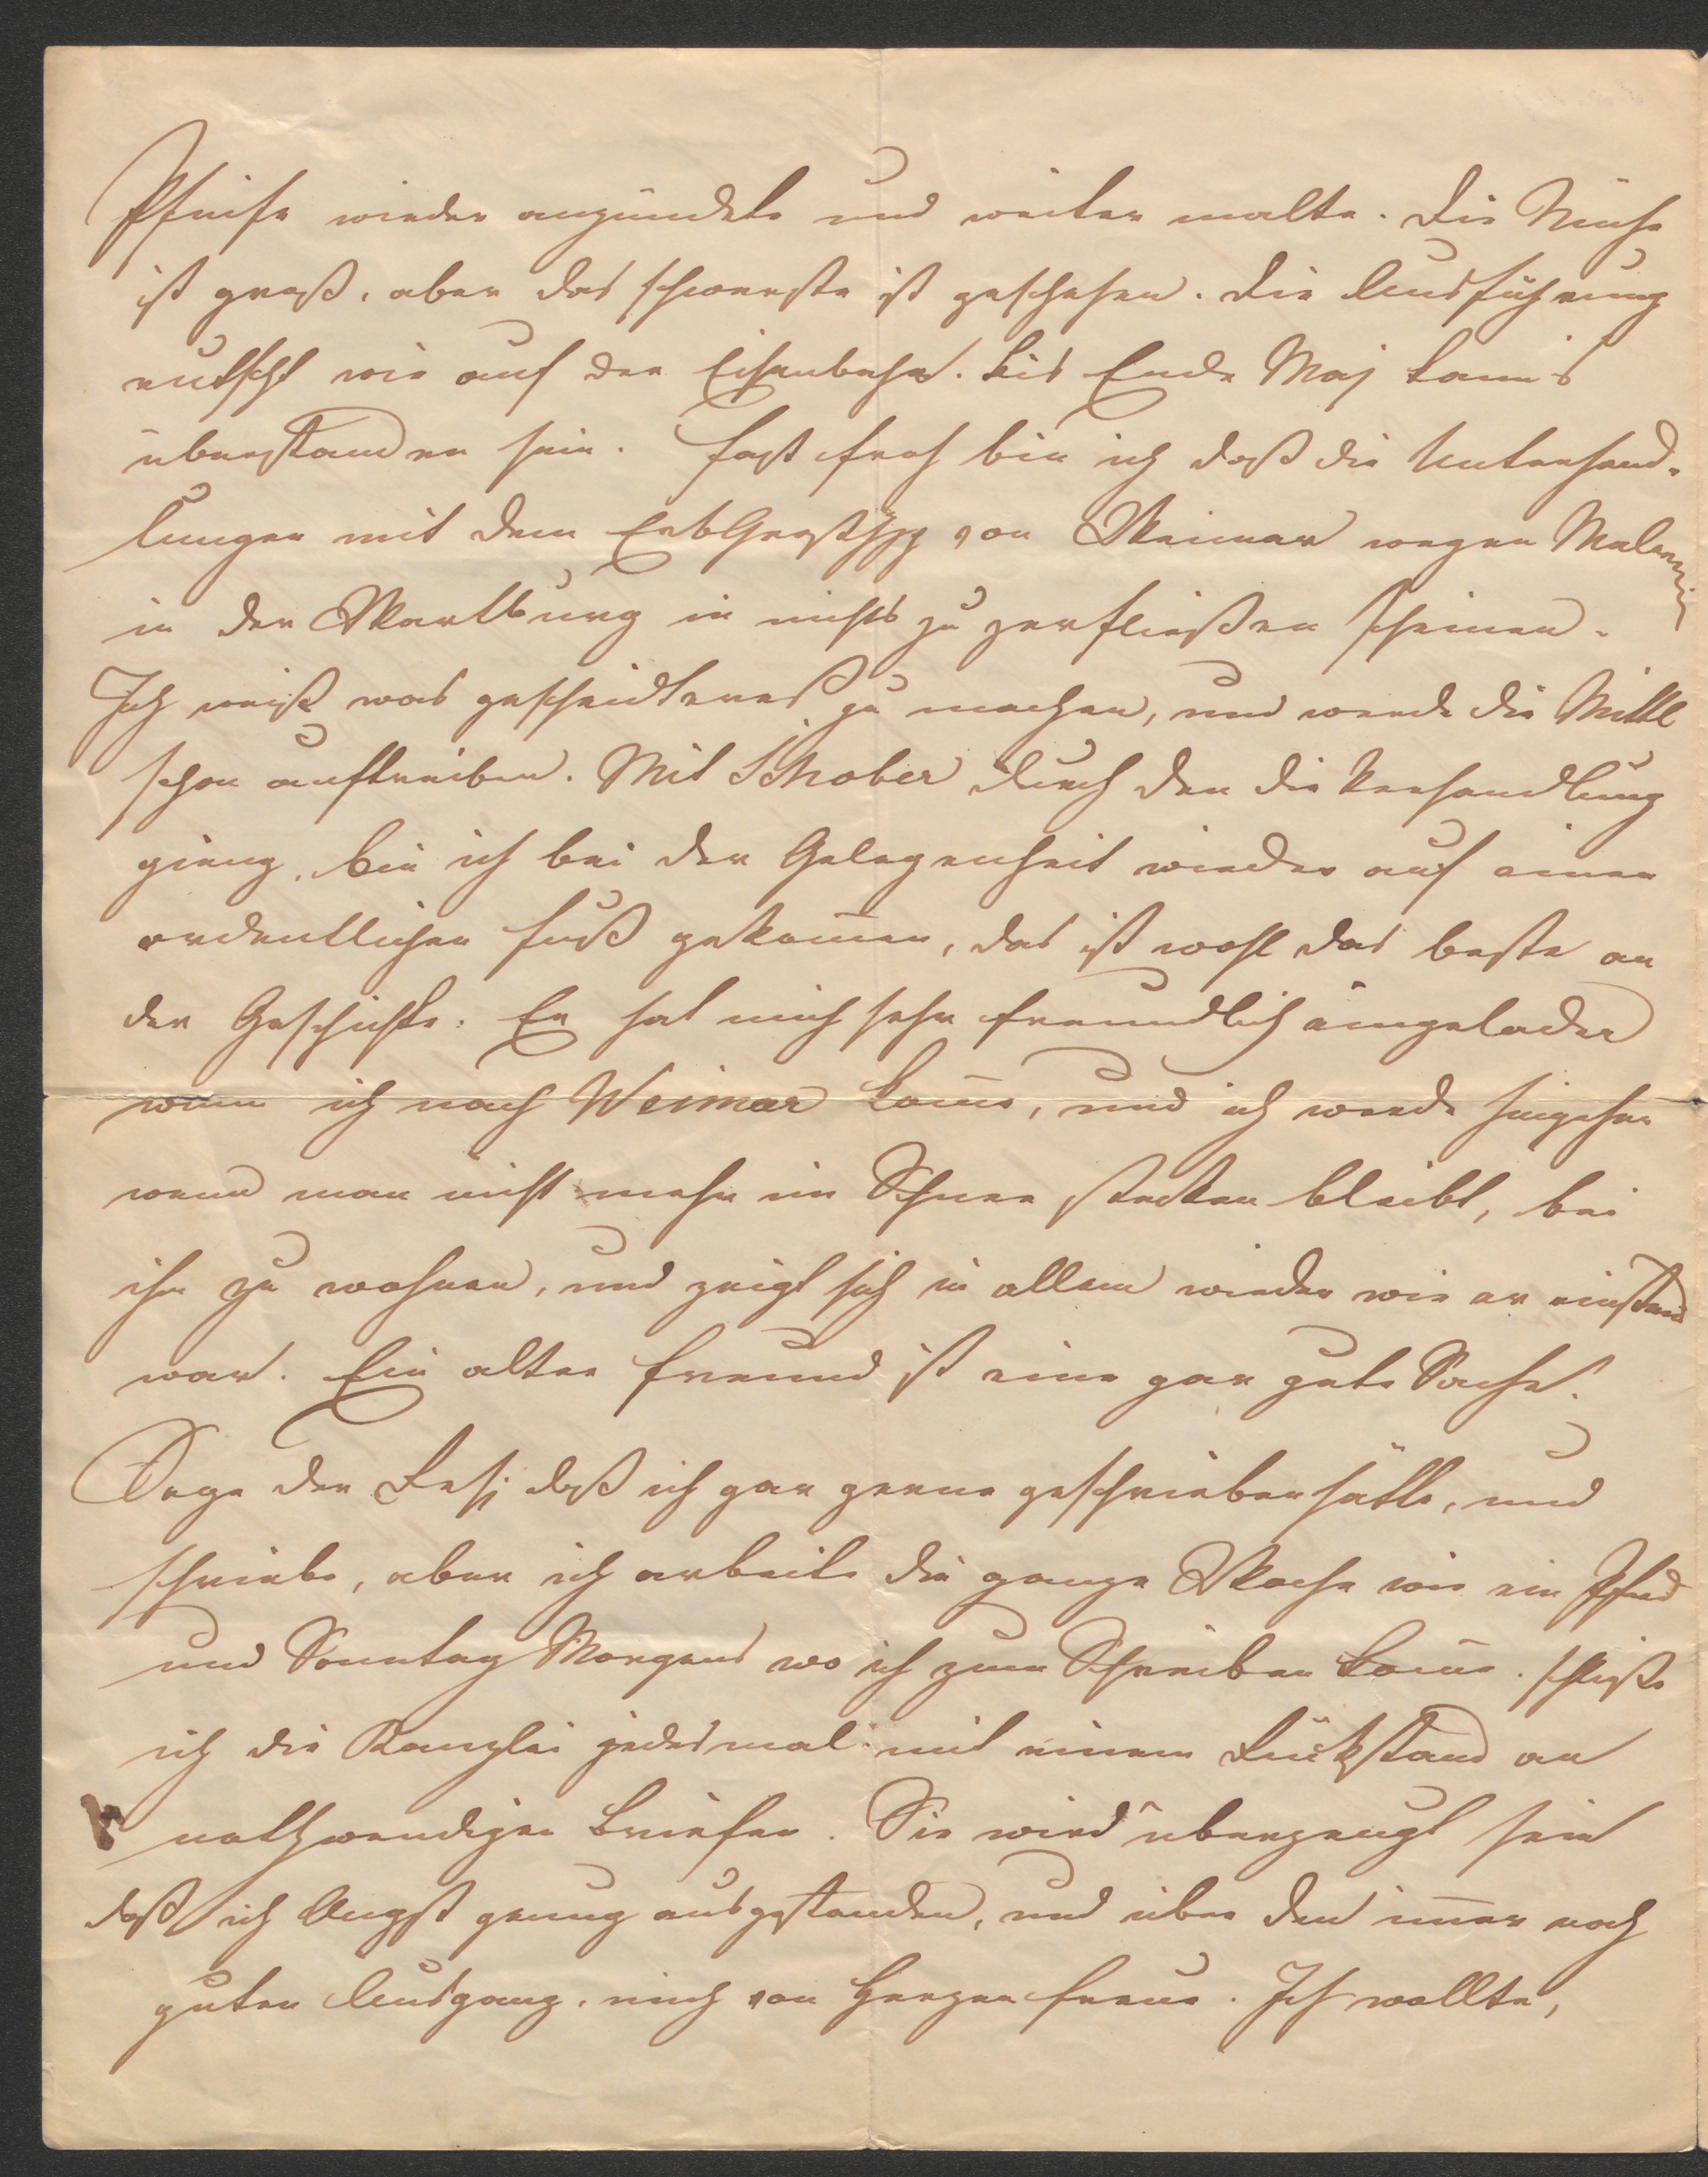 Pfeife wieder anzündete und weiter malte. Die Mühe
ist groß, aber das schwerste ist geschehen. Die Ausführung
rutscht wie auf der Eisenbahn. Bis Ende Maj kann's
überstanden sein. Fast froh bin ich daß die Unterhand-
lungen mit dem ErbGroßhzg von Weimar wegen Malerei
in der Wartburg in nichts zu zerfließen scheinen.
Ich weiß was gescheidteres zu machen, und werde die Mittl
schon auftreiben. Mit Schober durch den die Verhandlung
gieng, bin ich bei der Gelegenheit wieder auf einen
ordentlichen Fuß gekom̄en, das ist wohl das beste an
der Geschichte. Er hat mich sehr freundlich eingeladen
wenn ich nach Weimar kom̄e, und ich werde hingehen
wenn man nicht mehr im Schnee stecken bleibt, bei
ihm zu wohnen, und zeigt sich in allem wieder wie er einstens
war. Ein alter Freund ist eine gar gute Sache.
Sage der Resj daß ich gar gerne geschrieben hätte, und
schriebe, aber ich arbeite die ganze Woche wie ein Pferd
und Sonntag Morgens wo ich zum Schreiben kom̄e, schließe
ich die Kanzlei jedesmal mit einem Rückstand an
nothwendigen Briefen. Sie wird überzeugt sein
daß ich Angst genug ausgestanden, und über den im̄er noch
guten Ausgang, mich von Herzen freue. Ich wollte,